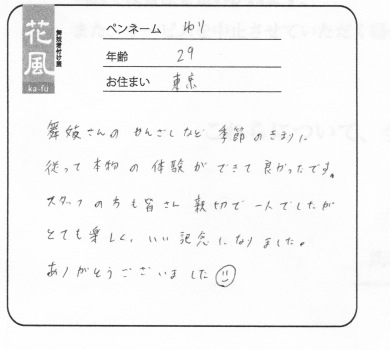 花風
舞妓着付け処
ka-fu
ペンネーム ゆり
年齢 29
お住まい 東京
舞妓さんの かんざしなど 季節 のきまりに
従って 本物 の 体験 が できて 良かったです。
スタッフ の方も 皆さん 親切で 一人でしたが
とても 楽しく、いい 記念 に なりました。
ありがとうございました